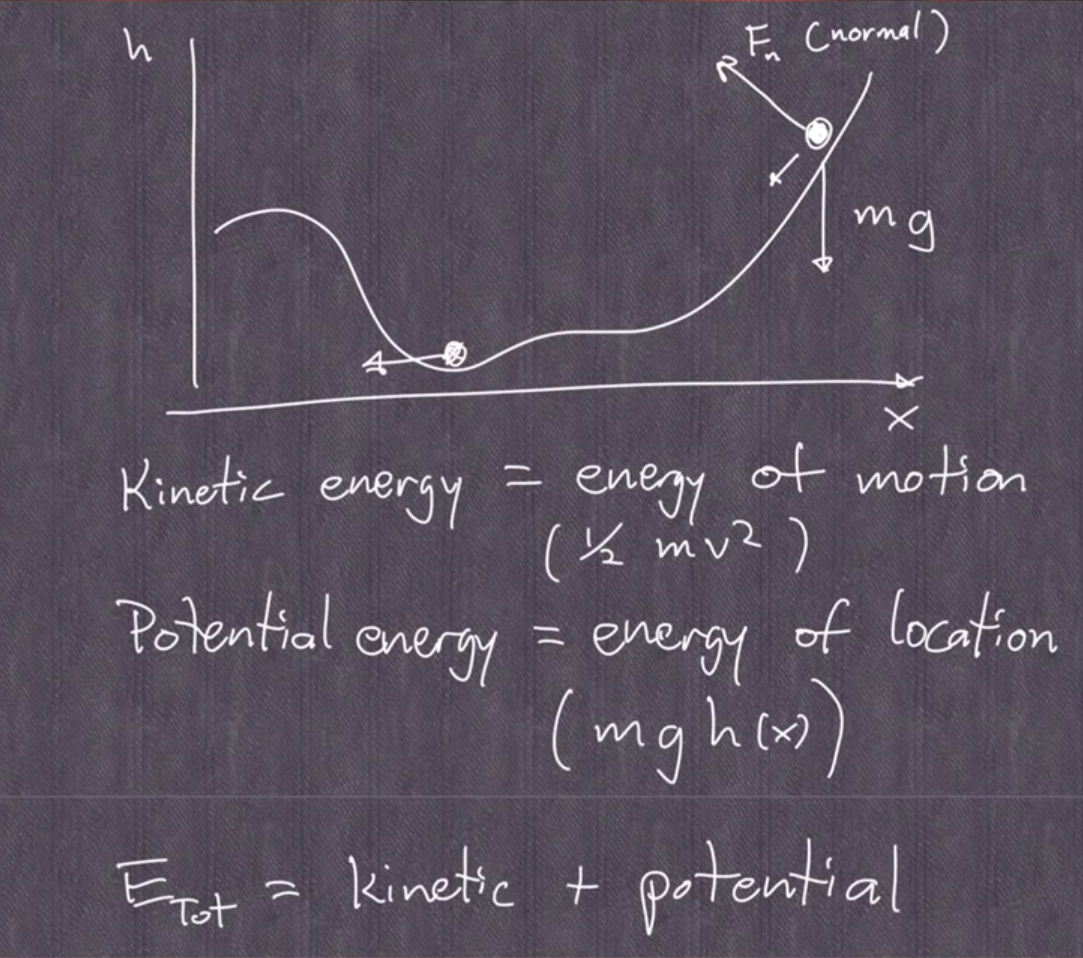 h
F_n (normal)
mg
x
Kinetic energy = energy of motion
(½ mv²)
Potential energy = energy of location
(mgh(x))
E_Tot = kinetic + potential